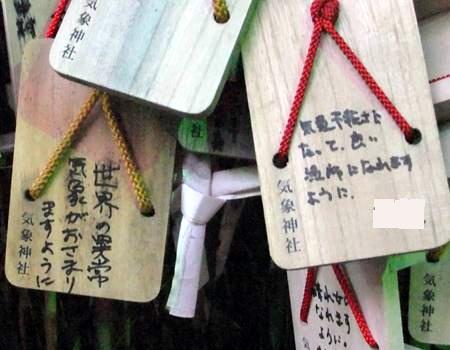 気象神社
気象神社
世界の異常
気象がおさまり
ますように
気象神社
気象予報士に
なって、良い
漁師になれます
ように。
気象神社
晴れ女
なれます
ように。
気象神社